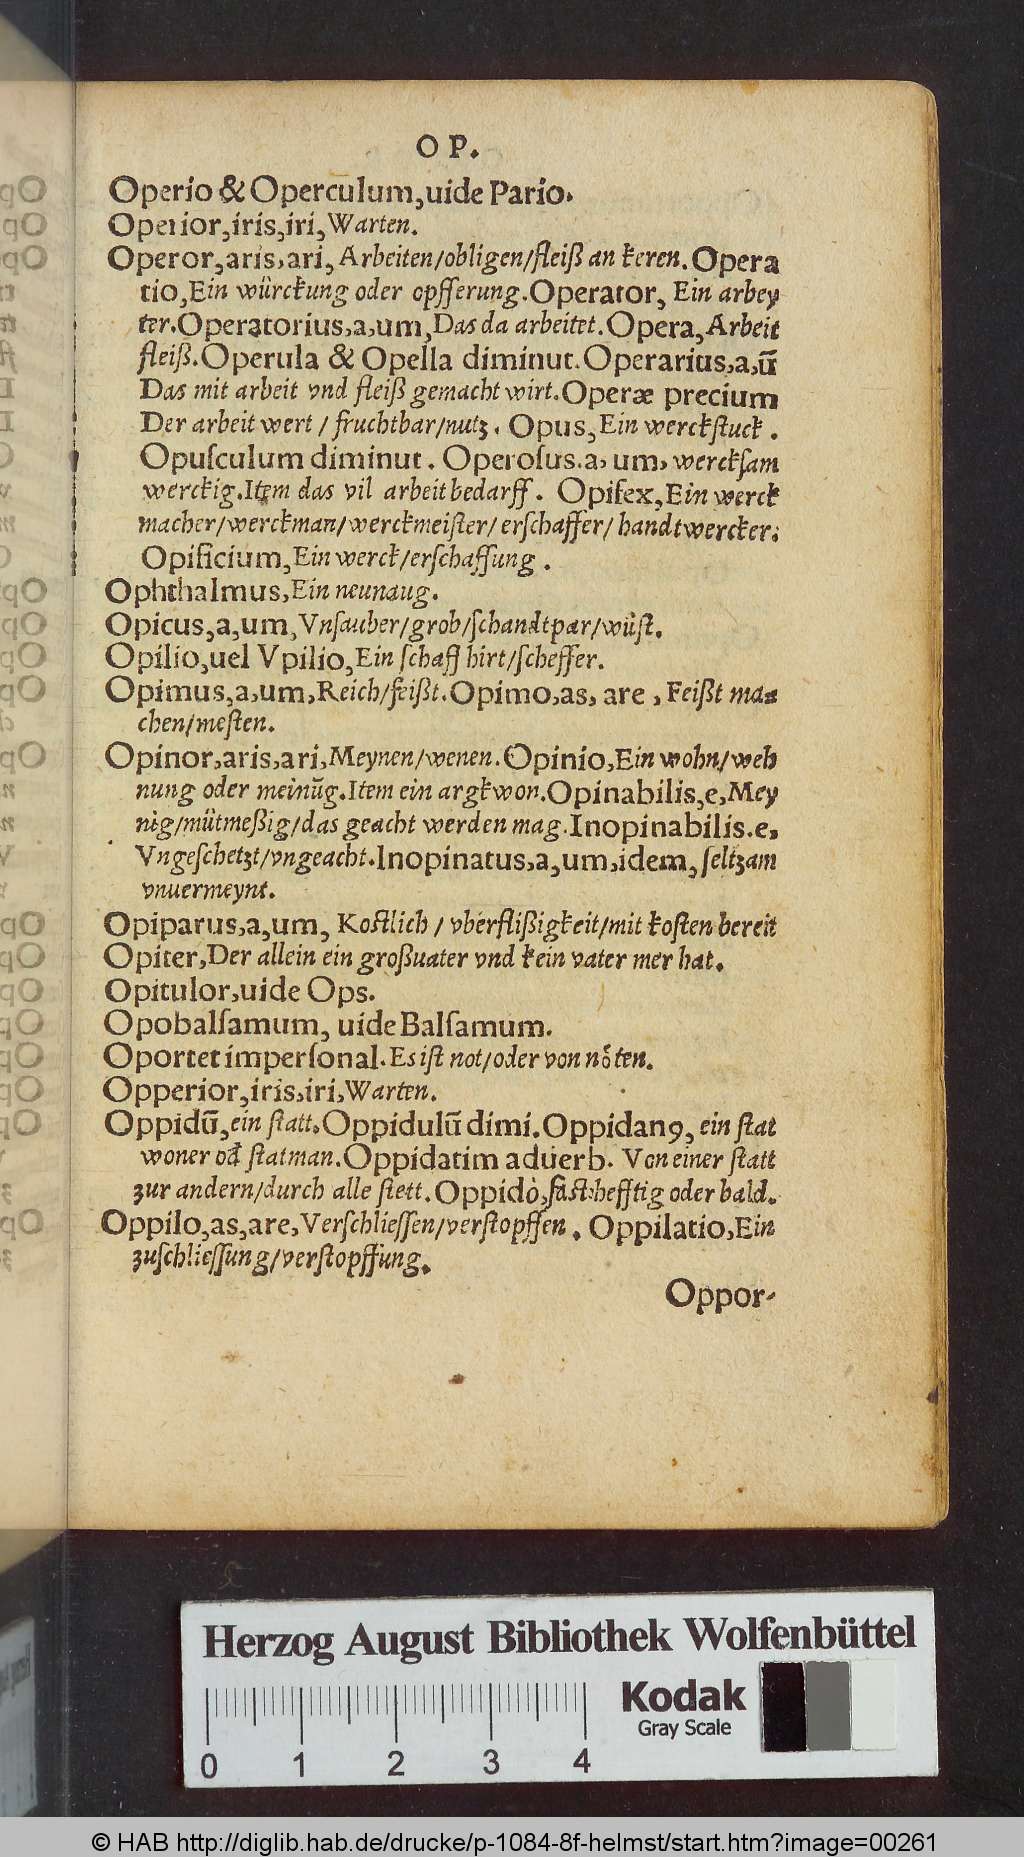 O P.
Operio & Operculum, uide Pario.
Operior, iris, iri, Warten.
Operor, aris, ari, Arbeiten/obligen/fleiß an keren. Opera
tio, Ein würckung oder opfferung. Operator, Ein arbey
ter. Operatorius, a, um, Das da arbeitet. Opera, Arbeit
fleiß. Operula & Opella diminut. Operarius, a, ū
Das mit arbeit vnd fleiß gemacht wirt. Operæ precium
Der arbeit wert / fruchtbar/nutz. Opus, Ein werckſtuck.
Opuſculum diminut. Operoſus. a, um, werckſam
werckig. Item das vil arbeit bedarff. Opifex, Ein werck
macher/werckman/werckmeiſter/ erſchaffer/ handtwercker.
Opificium, Ein werck/erſchaffung.
Ophthalmus, Ein neunaug.
Opicus, a, um, Vnſauber/grob/ſchandtpar/wüſt.
Opilio, uel Vpilio, Ein ſchaff hirt/ſcheffer.
Opimus, a, um, Reich/feißt. Opimo, as, are, Feißt ma-
chen/meſten.
Opinor, aris, ari, Meynen/wenen. Opinio, Ein wohn/weh
nung oder meinūg. Item ein argkwon. Opinabilis, e, Mey
nig/mütmeßig/das geacht werden mag. Inopinabilis. e,
Vngeſchetzt/vngeacht. Inopinatus, a, um, idem, ſeltzam
vnuermeynt.
Opiparus, a, um, Koſtlich / vberflißigkeit/mit koſten bereit
Opiter, Der allein ein großuater vnd kein vater mer hat.
Opitulor, uide Ops.
Opobalſamum, uide Balſamum.
Oportet imperſonal. Es iſt not/oder von nöten.
Opperior, iris, iri, Warten.
Oppidū, ein ſtatt. Oppidulū dimi. Oppidanꝰ, ein ſtat
woner od̄ ſtatman. Oppidatim aduerb. Von einer ſtatt
zur andern/durch alle ſtett. Oppidò, faſt hefftig oder bald.
Oppilo, as, are, Verſchlieſſen/verſtopffen. Oppilatio, Ein
zuſchlieſſung/verſtopffung.
Oppor-
Herzog August Bibliothek Wolfenbüttel
Kodak
Gray Scale
0 1 2 3 4
© HAB http://diglib.hab.de/drucke/p-1084-8f-helmst/start.htm?image=00261